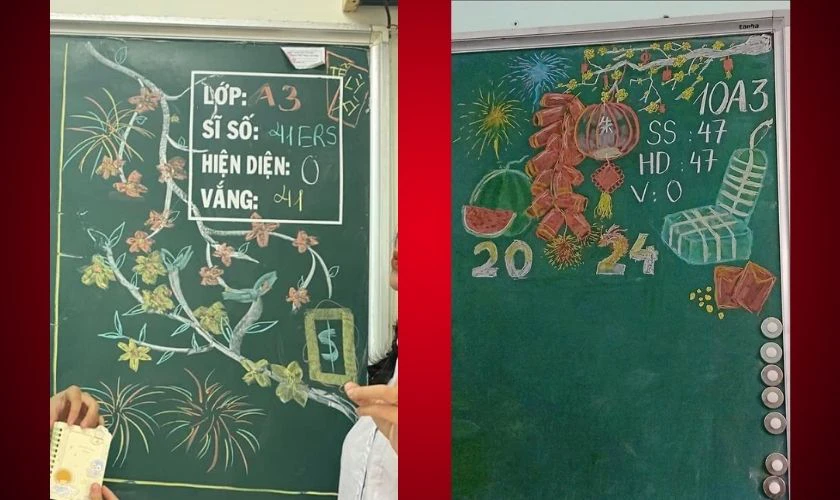 LỚP: A3
SĨ SỐ: 41ERS
HIỆN DIỆN: 0
VẮNG: 41
$
10A3
SS : 47
HD : 47
V: 0
20 24